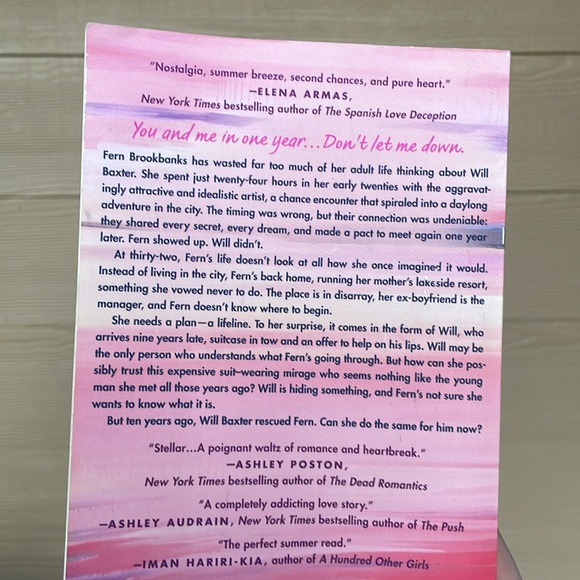 "Nostalgia, summer breeze, second chances, and pure heart."
—ELENA ARMAS,
New York Times bestselling author of The Spanish Love Deception
You and me in one year...Don't let me down.
Fern Brookbanks has wasted far too much of her adult life thinking about Will
Baxter. She spent just twenty-four hours in her early twenties with the aggravat-
ingly attractive and idealistic artist, a chance encounter that spiraled into a daylong
adventure in the city. The timing was wrong, but their connection was undeniable:
they shared every secret, every dream, and made a pact to meet again one year
later. Fern showed up. Will didn't.
At thirty-two, Fern's life doesn't look at all how she once imagined it would.
Instead of living in the city, Fern's back home, running her mother's lakeside resort,
something she vowed never to do. The place is in disarray, her ex-boyfriend is the
manager, and Fern doesn't know where to begin.
She needs a plan—a lifeline. To her surprise, it comes in the form of Will, who
arrives nine years late, suitcase in tow and an offer to help on his lips. Will may be
the only person who understands what Fern's going through. But how can she pos-
sibly trust this expensive suit–wearing mirage who seems nothing like the young
man she met all those years ago? Will is hiding something, and Fern's not sure she
wants to know what it is.
But ten years ago, Will Baxter rescued Fern. Can she do the same for him now?
"Stellar...A poignant waltz of romance and heartbreak."
—ASHLEY POSTON,
New York Times bestselling author of The Dead Romantics
"A completely addicting love story."
—ASHLEY AUDRAIN, New York Times bestselling author of The Push
"The perfect summer read."
—IMAN HARIRI-KIA, author of A Hundred Other Girls